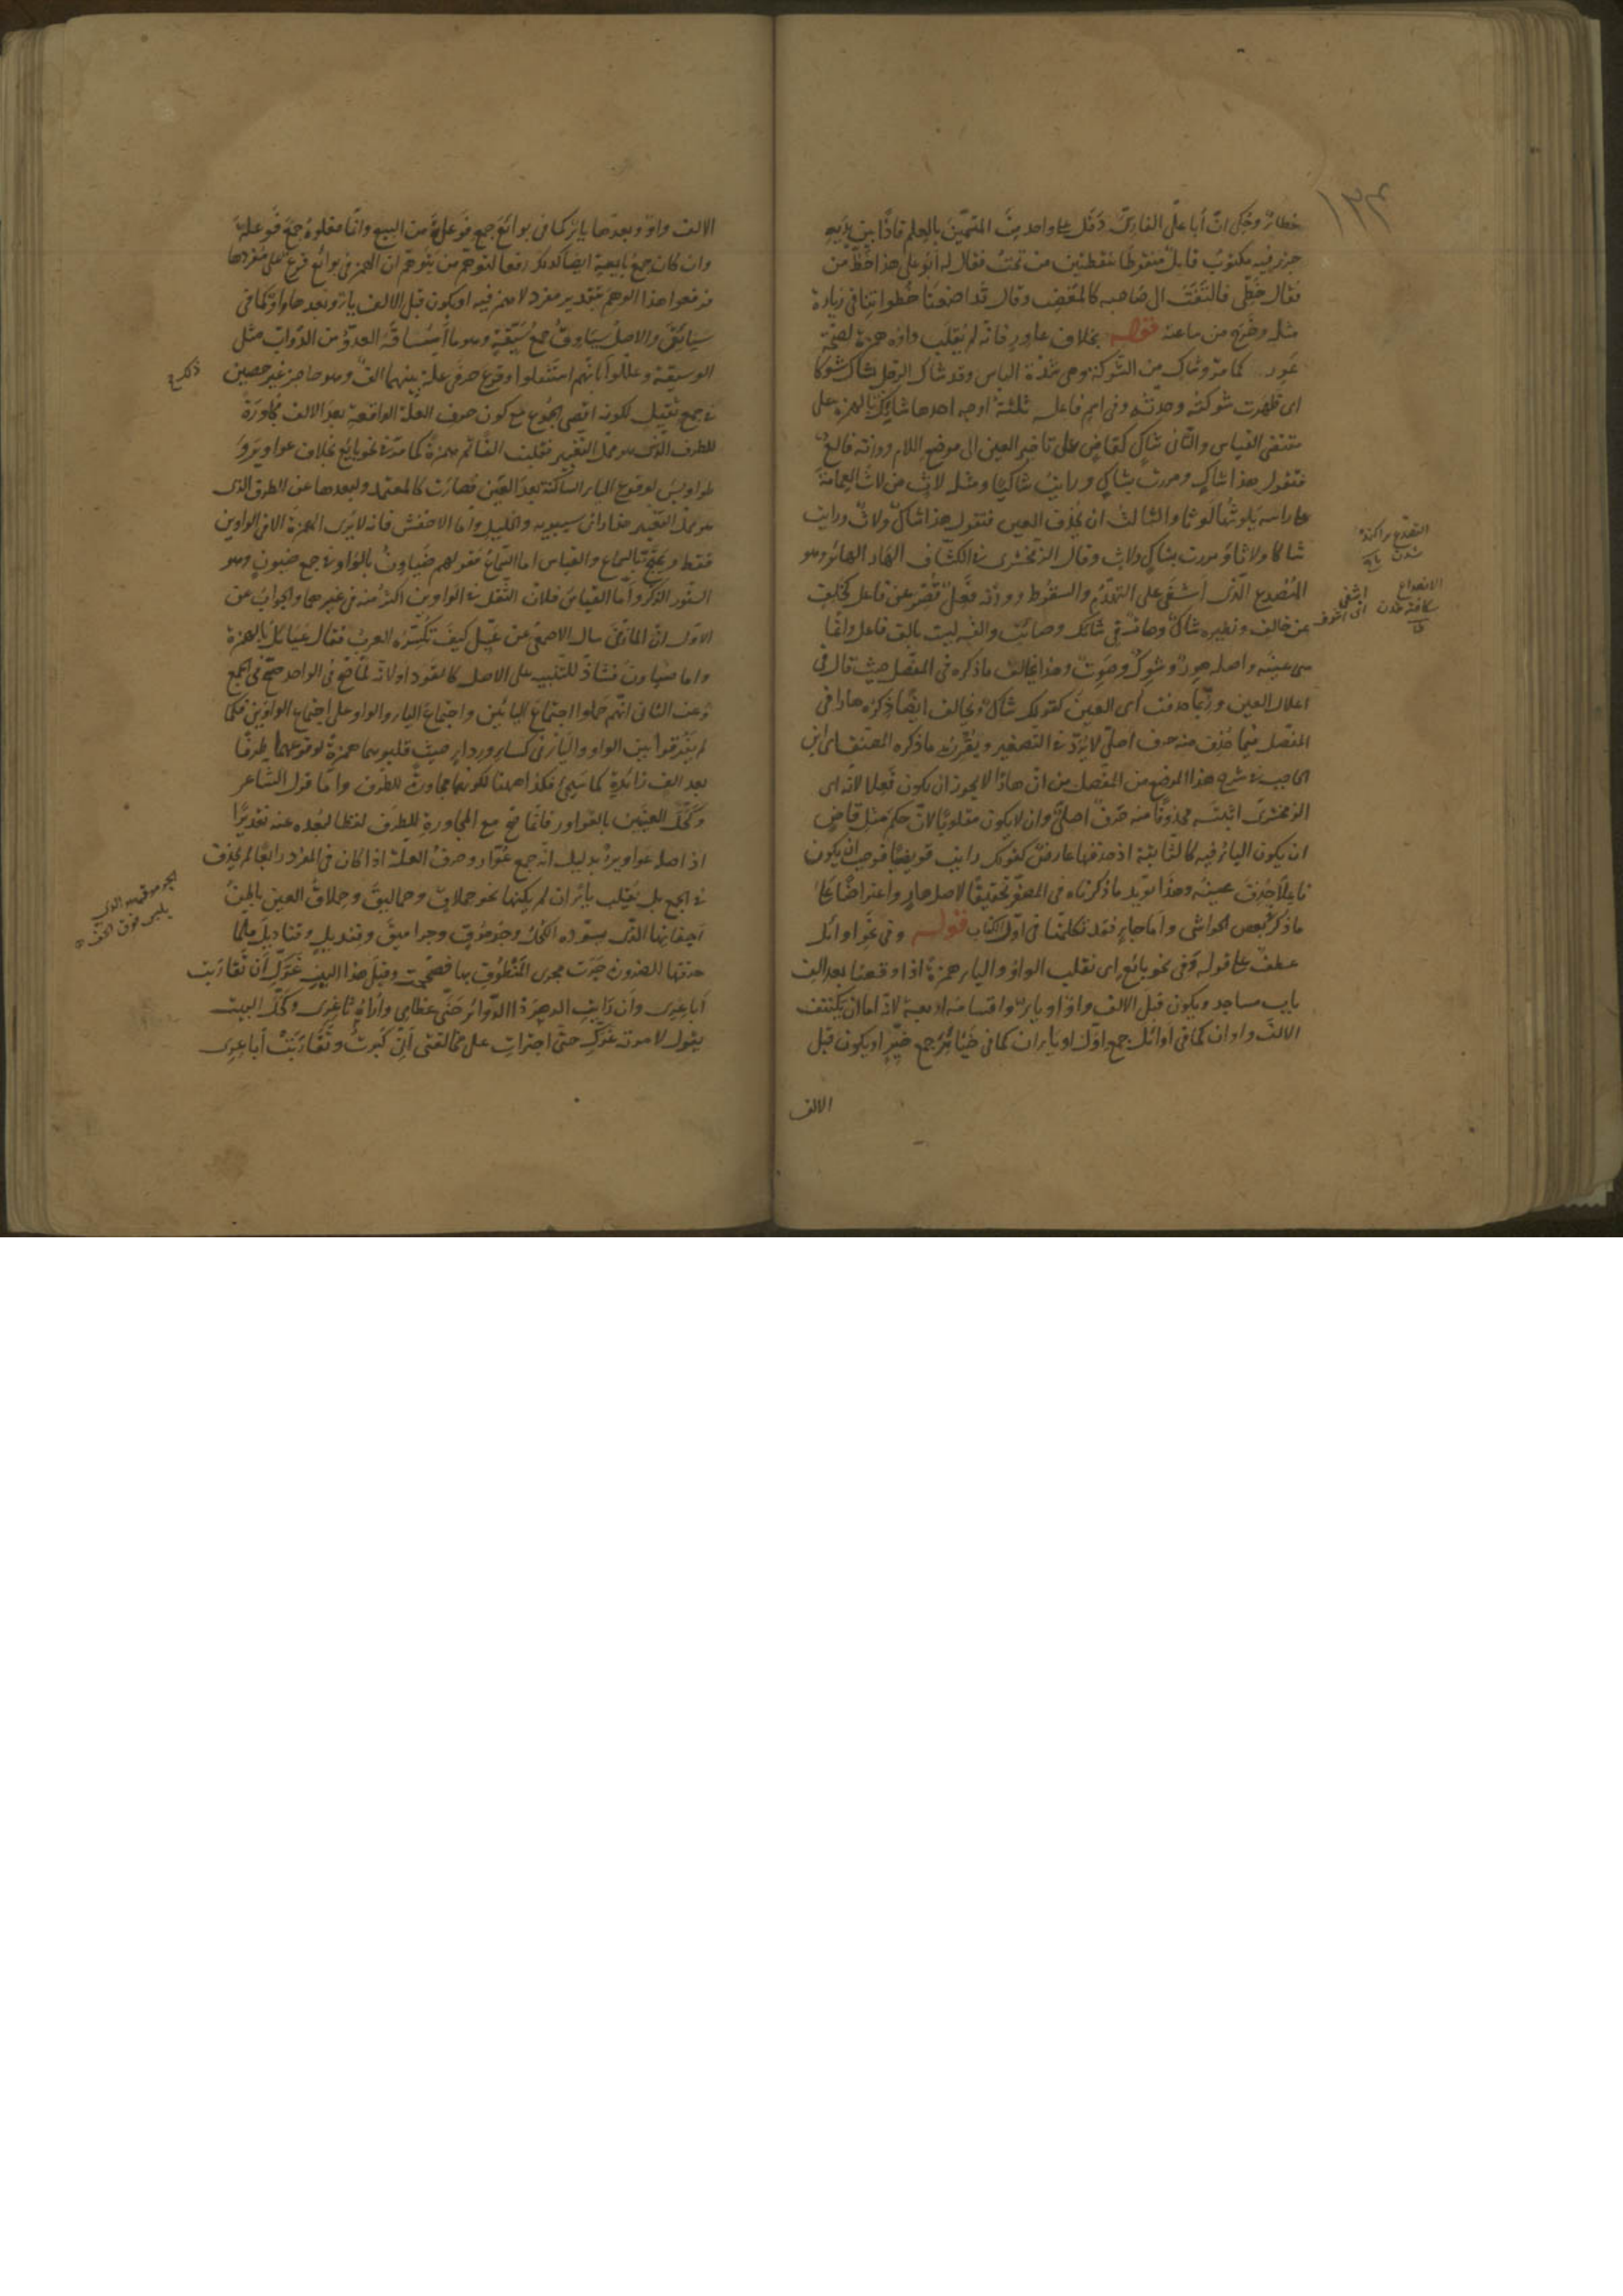 ١٢٤
خطاء وحكى ان أبا على الفارسى دخل على واحد من المتسمين بالعلم فاذا بين يديه
جزء فيه مكتوب قايل منقوطا بنقطتين من تحت فقال له أبو على هذا خط من
فقال خطى فالتفت الى صاحبه كالمغضب وقال قد اضعنا خطواتنا فى زيارة
مثله وخرج من ساعته قوله بخلاف عاور فانه لم يقلب واوه همزة لصحة
عور كما مر وشاك من الشوكة وهى شدة الباس وقد شاك الرجل يشاك شوكا
اى ظهرت شوكته وحدته وفى اسم فاعله ثلثة اوجه احدها شايك بالهمزة على
مقتضى القياس والثانى شاك كقاض على تاخير العين الى موضع اللام ووزنه فالع
فتقول هذا شاك ومررت بشاك ورايت شاكيا ومثله لاث من لاث العمامة
على راسه يلوثها لوثا والثالث ان يحذف العين فتقول هذا شاك ولاث ورايت
شاكا ولاثا ومررت بشاك ولاث وقال الزمخشرى فى الكشاف الهار الهائر وهو
المنصدع الذى اشفى على التهدم والسقوط ووزنه فعل قصر عن فاعل كخلف
عن خالف ونظيره شاك وصات فى شائك وصائت والفه ليست بالف فاعل وانما
هى عينه واصله هور وشوك وصوت وهذا يخالف ما ذكره فى المفصل حيث قال فى
اعلال العين وربما حذفت اى العين كقولك شاك ويخالف ايضا ذكره هارا فى
المفصل فيما حذف منه حرف اصلى لا يرد فى التصغير ويقرره ما ذكره المصنف اى ابن
الحاجب فى شرح هذا الموضع من المفصل من ان هارا لا يجوز ان يكون فعلا لانه اى
الزمخشرى اثبته محذوفا منه حرف اصلى وان لا يكون مقلوبا لان حكم مثل قاض
ان يكون الياء فيه كالثابتة اذ حذفها عارض كقولك رايت قويضيا فوجب ان يكون
فاعلا حذفت عينه وهذا يؤيد ما ذكرناه فى المصغر تحقيقا لاصل هار واعتراضا على
ما ذكر بعض الحواشى واما جاء فقد تكلمنا فى اول الكتاب قوله وفى نحو اوائل
عطف على قوله وفى نحو بائع اى تقلب الواو والياء همزة اذا وقعتا بعد الف
باب مساجد ويكون قبل الالف واو او ياء واقسامه اربعة لانه اما ان يكتنف
الالف واوان كما فى اوائل جمع اول او ياءان كما فى خيائر جمع خير او يكون قبل
الالف
التصدع پراكنده
شدن
الانصداع
شكافته شدن
اشفى
اى اشرف
الالف واو وبعدها ياء كما فى بوائع جمع فوعلة من البيع وانما مفلوه جمع فوعلة
وان كان جمع بايعة ايضا كذلك دفعا لتوهم من يتوهم ان الهمز فى بوائع فرع على مفردها
فدفعوا هذا الوهم بتقدير مفرد لا همز فيه او يكون قبل الالف ياء وبعدها واو كما فى
سيائق والاصل سياوق جمع سيقة وهو ما استاقه العدو من الدواب مثل
الوسيقة وعللوا بانهم استثقلوا وقوع حرفى علة بينهما الف وهو حاجز غير حصين
فى جمع ثقيل لكونه اقصى الجموع مع كون حرف العلة الواقعة بعد الالف مجاورة
للطرف الذى هو محل التغيير فقلبت الفا ثم همزة كما مر فى نحو بايع بخلاف عواوير و
طواويس لوقوع الياء الساكنة بعد العين فصارت كالمعتمد ولبعدها عن الطرف الذى
هو محل التغيير هذا راى سيبويه والخليل واما الاخفش فانه لا يرى الهمزة الا فى الواوين
فقط ويحتج بالسماع والقياس اما السماع فقولهم ضياون بالواو فى جمع ضيون وهو
السنور الذكر واما القياس فلان الثقل فى الواوين اكثر منه فى غيرهما والجواب عن
الاول ان المازنى سال الاصمعى عن عيل كيف تكسره العرب فقال عيائل بالهمزة
واما ضياون فشاذ للتنبيه على الاصل كالقود او لانه لما صح فى الواحد صح فى الجمع
وعن الثانى انهم حملوا اجتماع اليائين واجتماع الياء والواو على اجتماع الواوين فكما
لم يفرقوا بين الواو والياء فى كساء ورداء حيث قلبوهما همزة لوقوعهما طرفا
بعد الف زائدة كما سيجى فكذا ههنا لكونهما مجاورى للطرف واما قول الشاعر
وكحل العينين بالعواور فانما صح مع المجاورة للطرف لفظا لبعده عنه تقديرا
اذ اصله عواوير بدليل انه جمع عوار وحرف العلة اذا كان فى المفرد رابعا لم يحذف
فى الجمع بل يقلب ياء ان لم يكنها نحو حملاق وحماليق وحملاق العين باطن
اجفانها الذى يسوده الكحل وجرموق وجراميق وقنديل وقناديل فلما
حذفها للضرورة جرت مجرى المنطوق بها فصحت وقبل هذا البيت غرك ان تقاربت
اباعرى وان رايت الدهر ذا الدوائر حنى عظامى واراه ثاغرى وكحل البيت
يقول لامرته غرك حتى اجترات على مخالفتى انى كبرت وتقاربت اباعرى
الجرموق
يلبس فوق الخف